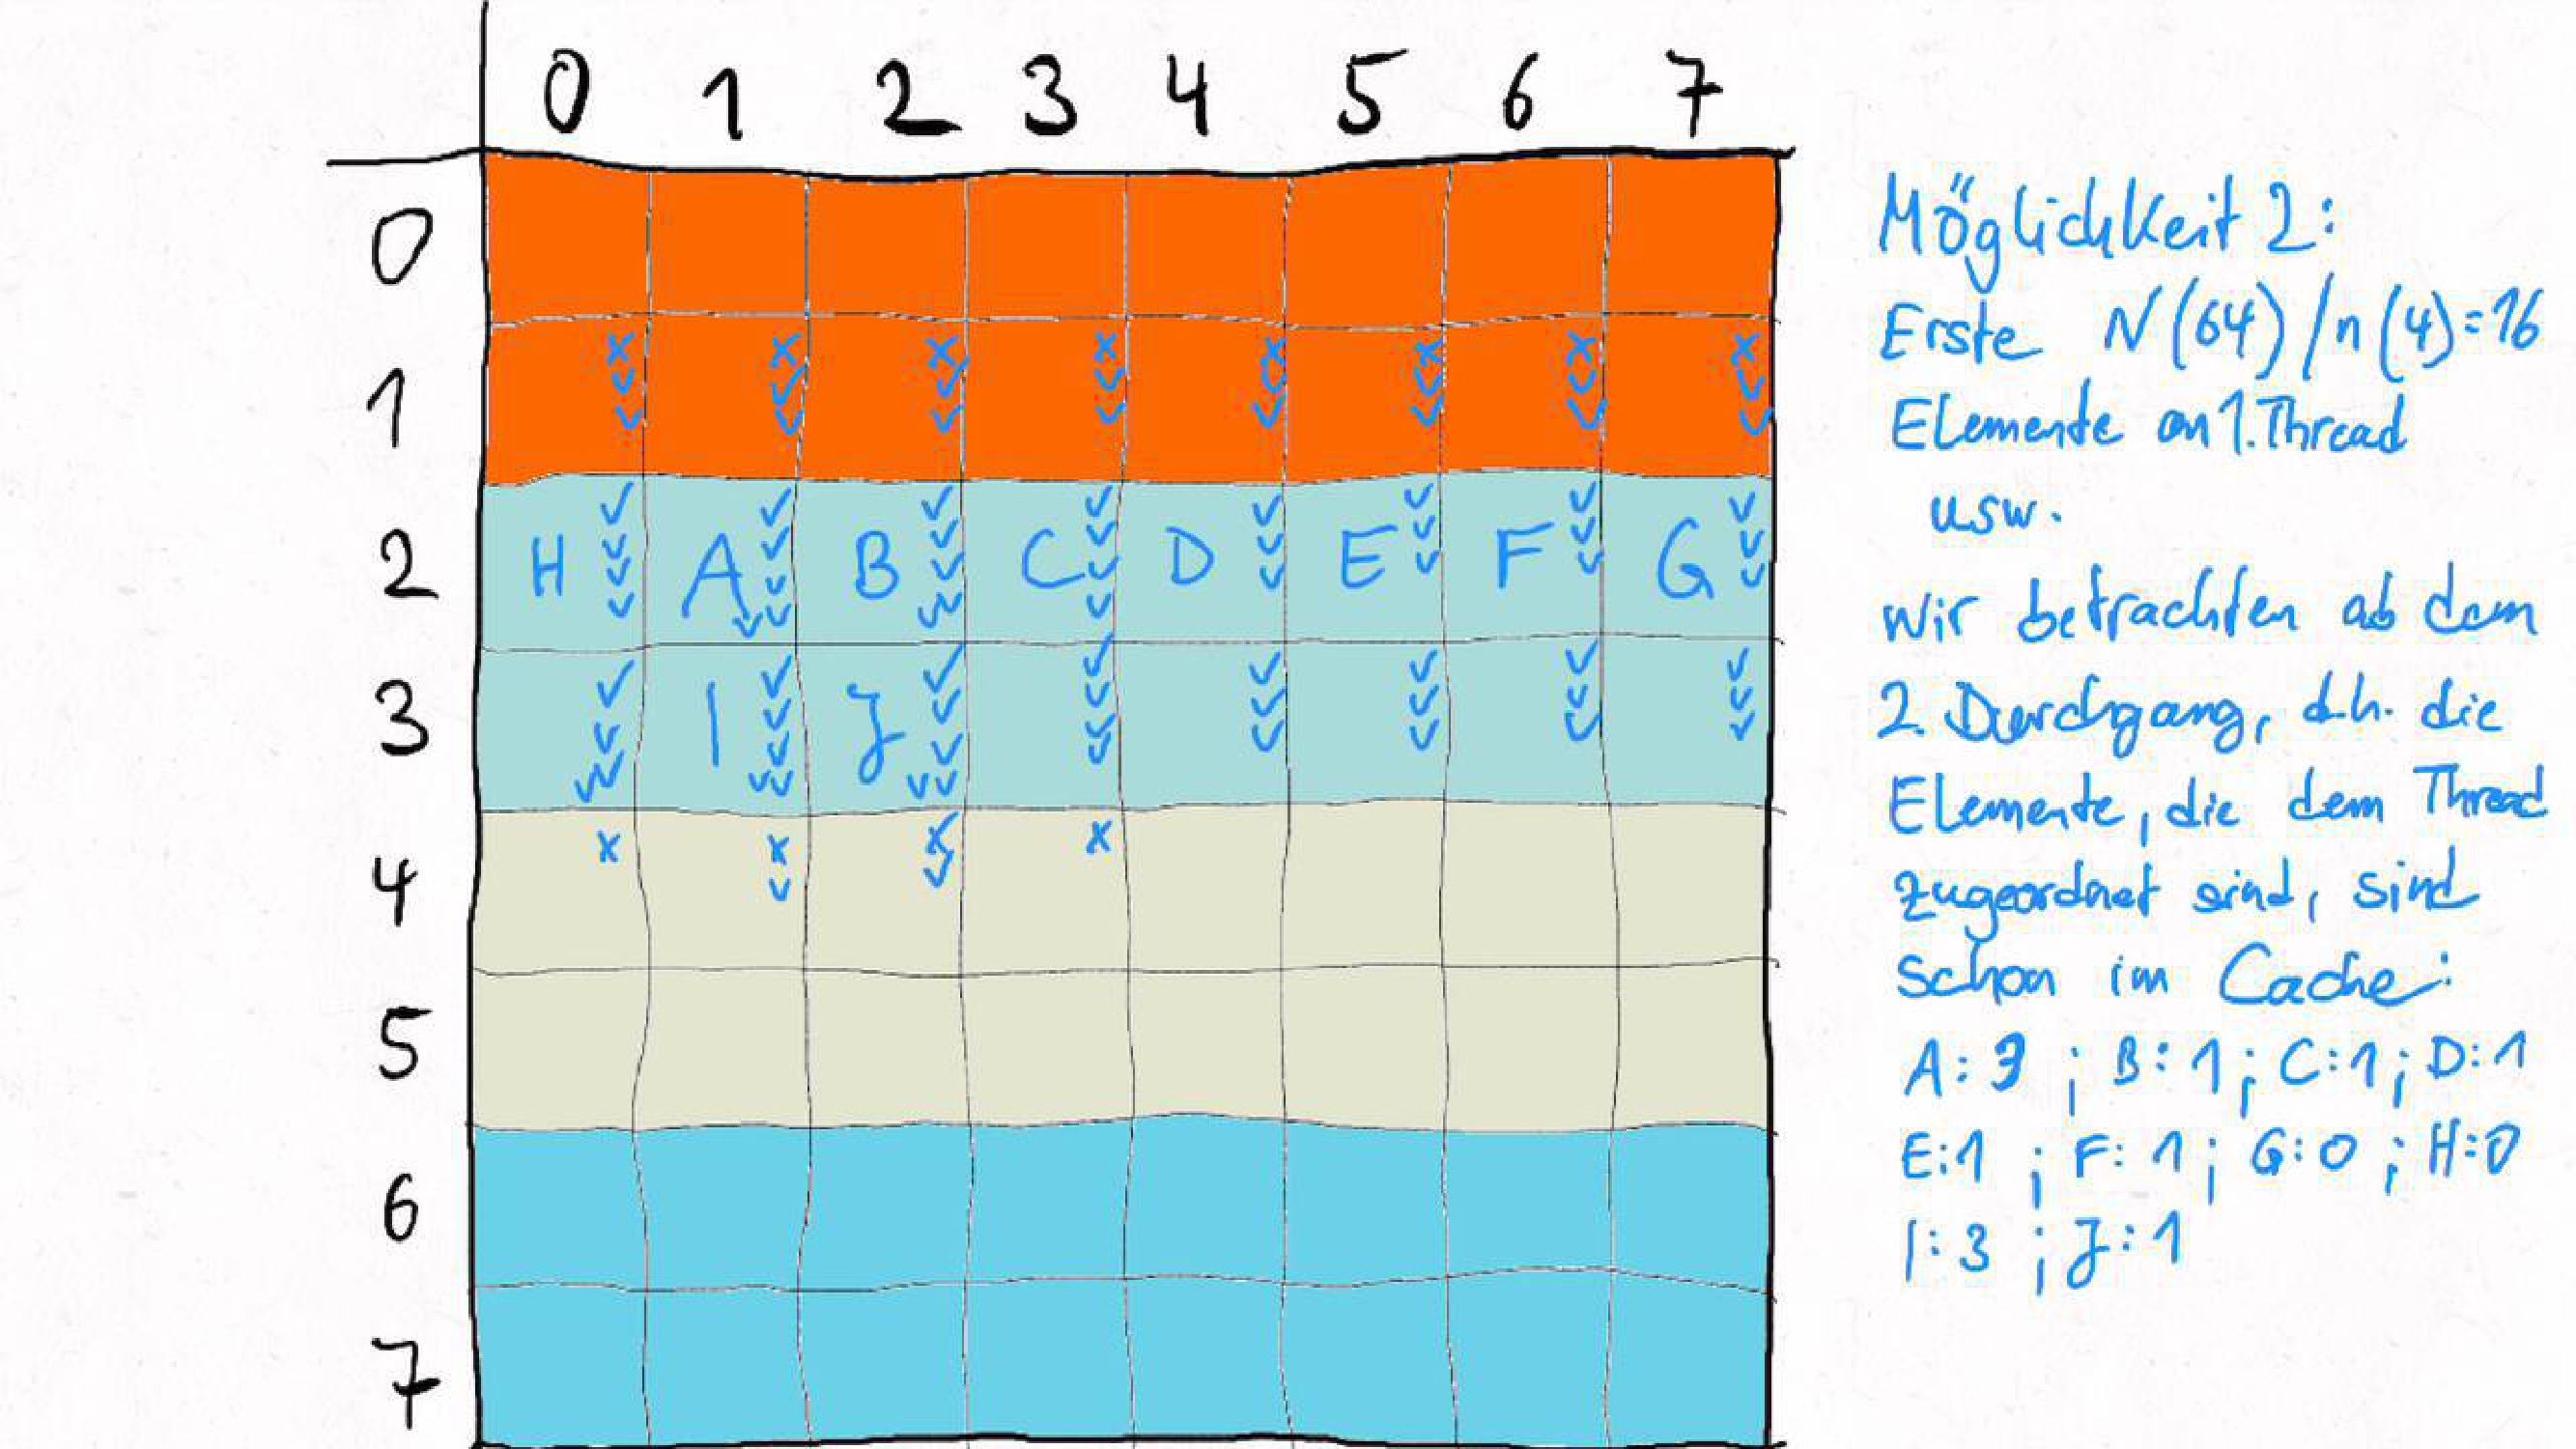 0 1 2 3 4 5 6 7
0
1
2 H A B C D E F G
3 I J
4
5
6
7
Möglichkeit 2:
Erste N(64)/n(4)=16
Elemente an 1. Thread
usw.
Wir betrachten ab dem
2. Durchgang, d.h. die
Elemente, die dem Thread
zugeordnet sind, sind
schon im Cache:
A: 3 ; B: 1 ; C: 1 ; D: 1
E: 1 ; F: 1 ; G: 0 ; H: 0
I: 3 ; J: 1